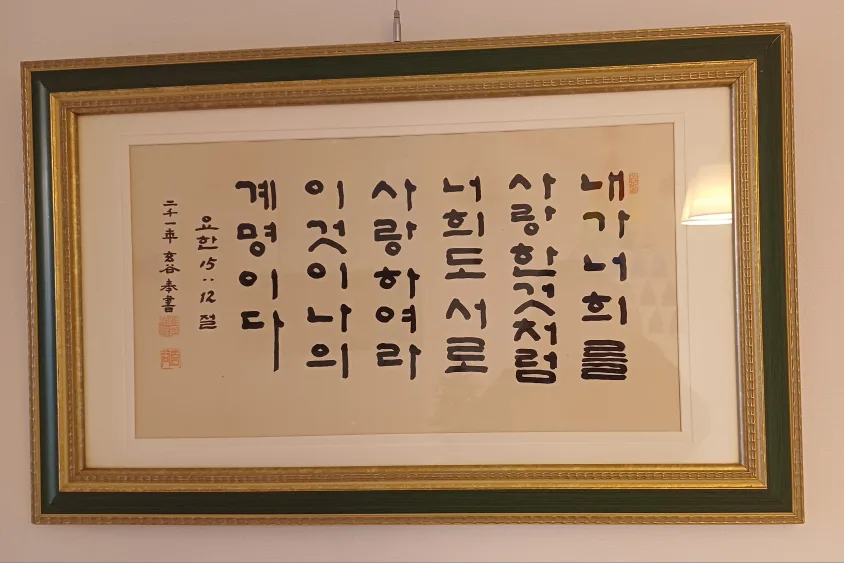 내가 너희를
사랑한것처럼
너희도 서로
사랑하여라
이것이 나의
계명이다
요한 15:12절
二千一年 玄谷 奉書